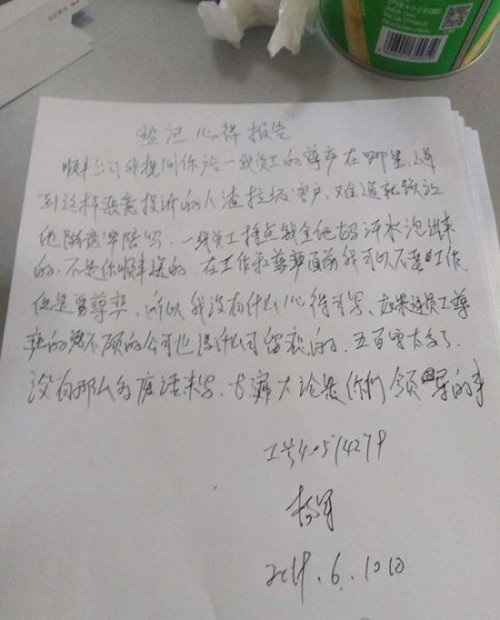 登记心得报告
顺丰公司我想问你话一线员工的尊严在哪里,遇
到这样恶意投诉的人渣垃圾客户,难道就须让
他随意索赔吗。一线员工挣点钱全他妈汗水泡出来
的.不是你顺丰送的.在工作和尊严面前我可以不要工作.
但是要尊严.所以我没有什么心得可写.如果连员工尊
严的都不顾的公司也没什么可留恋的.五百字太多了.
没有那么多废话来写.长篇大论是你们领导的事
工号40574279
6.10日